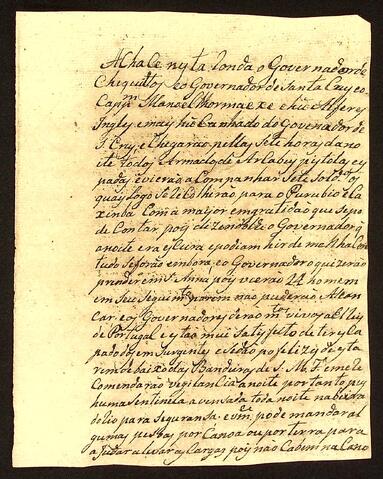 Achace nesta Ronda o Governador de
Chiquittos, e o Governador de Santa Cruz, e o
Capp.m Manoel Thormae xe e hũ Alferes
Ingles e mays hũ Cunhado do Governador de
S. Cruz, e Chegarão pellas Sete horas da no
ite todos Armados de e pystolas, e es
padas, e vierão a Companhar Sete Sold.os, os
quays logo Se Recolherão para o Purubio e La
xinba Com a mayor emgratidão que Se po
de Contar, poys dezenoble o Governador q
a noite era escura e podiam hir de manhã Con
tudo Se forão embora, e o Governador quizerão
prender em S. Anna, poys vierão 24 homem
em Seu Seguim.to, porem não puderão Alcan
car, e os Governadores derão m.tos vivas a El Rey
de Portugal e estão mui Satysfeito de ter escà
padodos emSurgentes, e Se dão por felizes de esta
rem debaixo das Bandeiras de S. M. F. e me Re
comendarão vegilancia a noite, por tanto puz
huma Sentinela avansada toda noite na beirada
do Rio para Seguransa. e vm.ce pode mandar al
gumas pessoas por Canoa ou por terra para
a Judar a levar as Cargas poys não Cabem na Cano